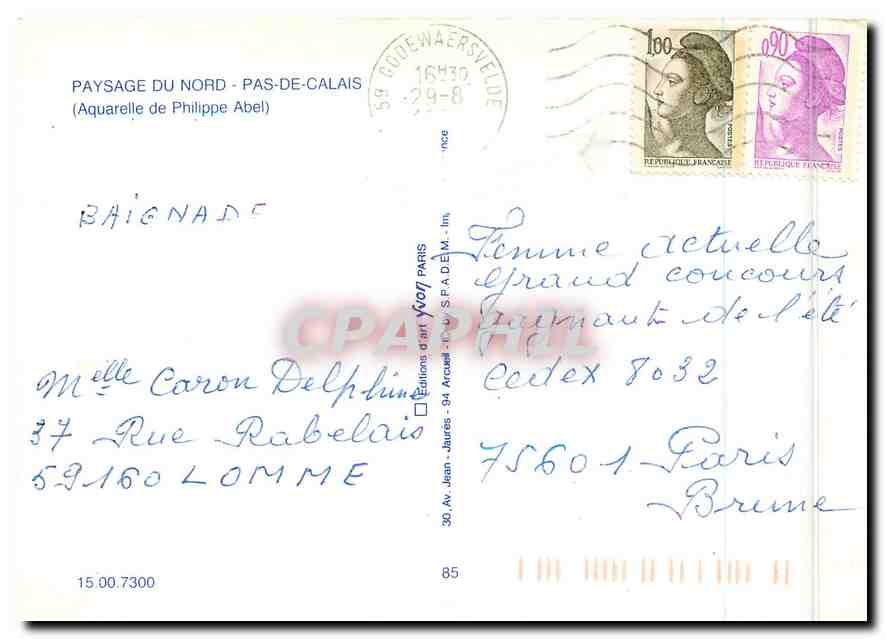 PAYSAGE DU NORD - PAS-DE-CALAIS
(Aquarelle de Philippe Abel)
59 GODEWAERSVELDE
16H30
29-8
1,00
POSTES
REPUBLIQUE FRANÇAISE
0,90
POSTES
REPUBLIQUE FRANÇAISE
BAIGNADE
Melle Caron Delphine
37 Rue Rabelais
59160 LOMME
15.00.7300
Editions d'art yvon PARIS
30, Av. Jean - Jaurès - 94 Arcueil - S.P.A.D.E.M. - Im.
85
Femme actuelle
grand concours
gagnants de l'été
Cedex 8032
75601 Paris
Brune
CPAPHIL